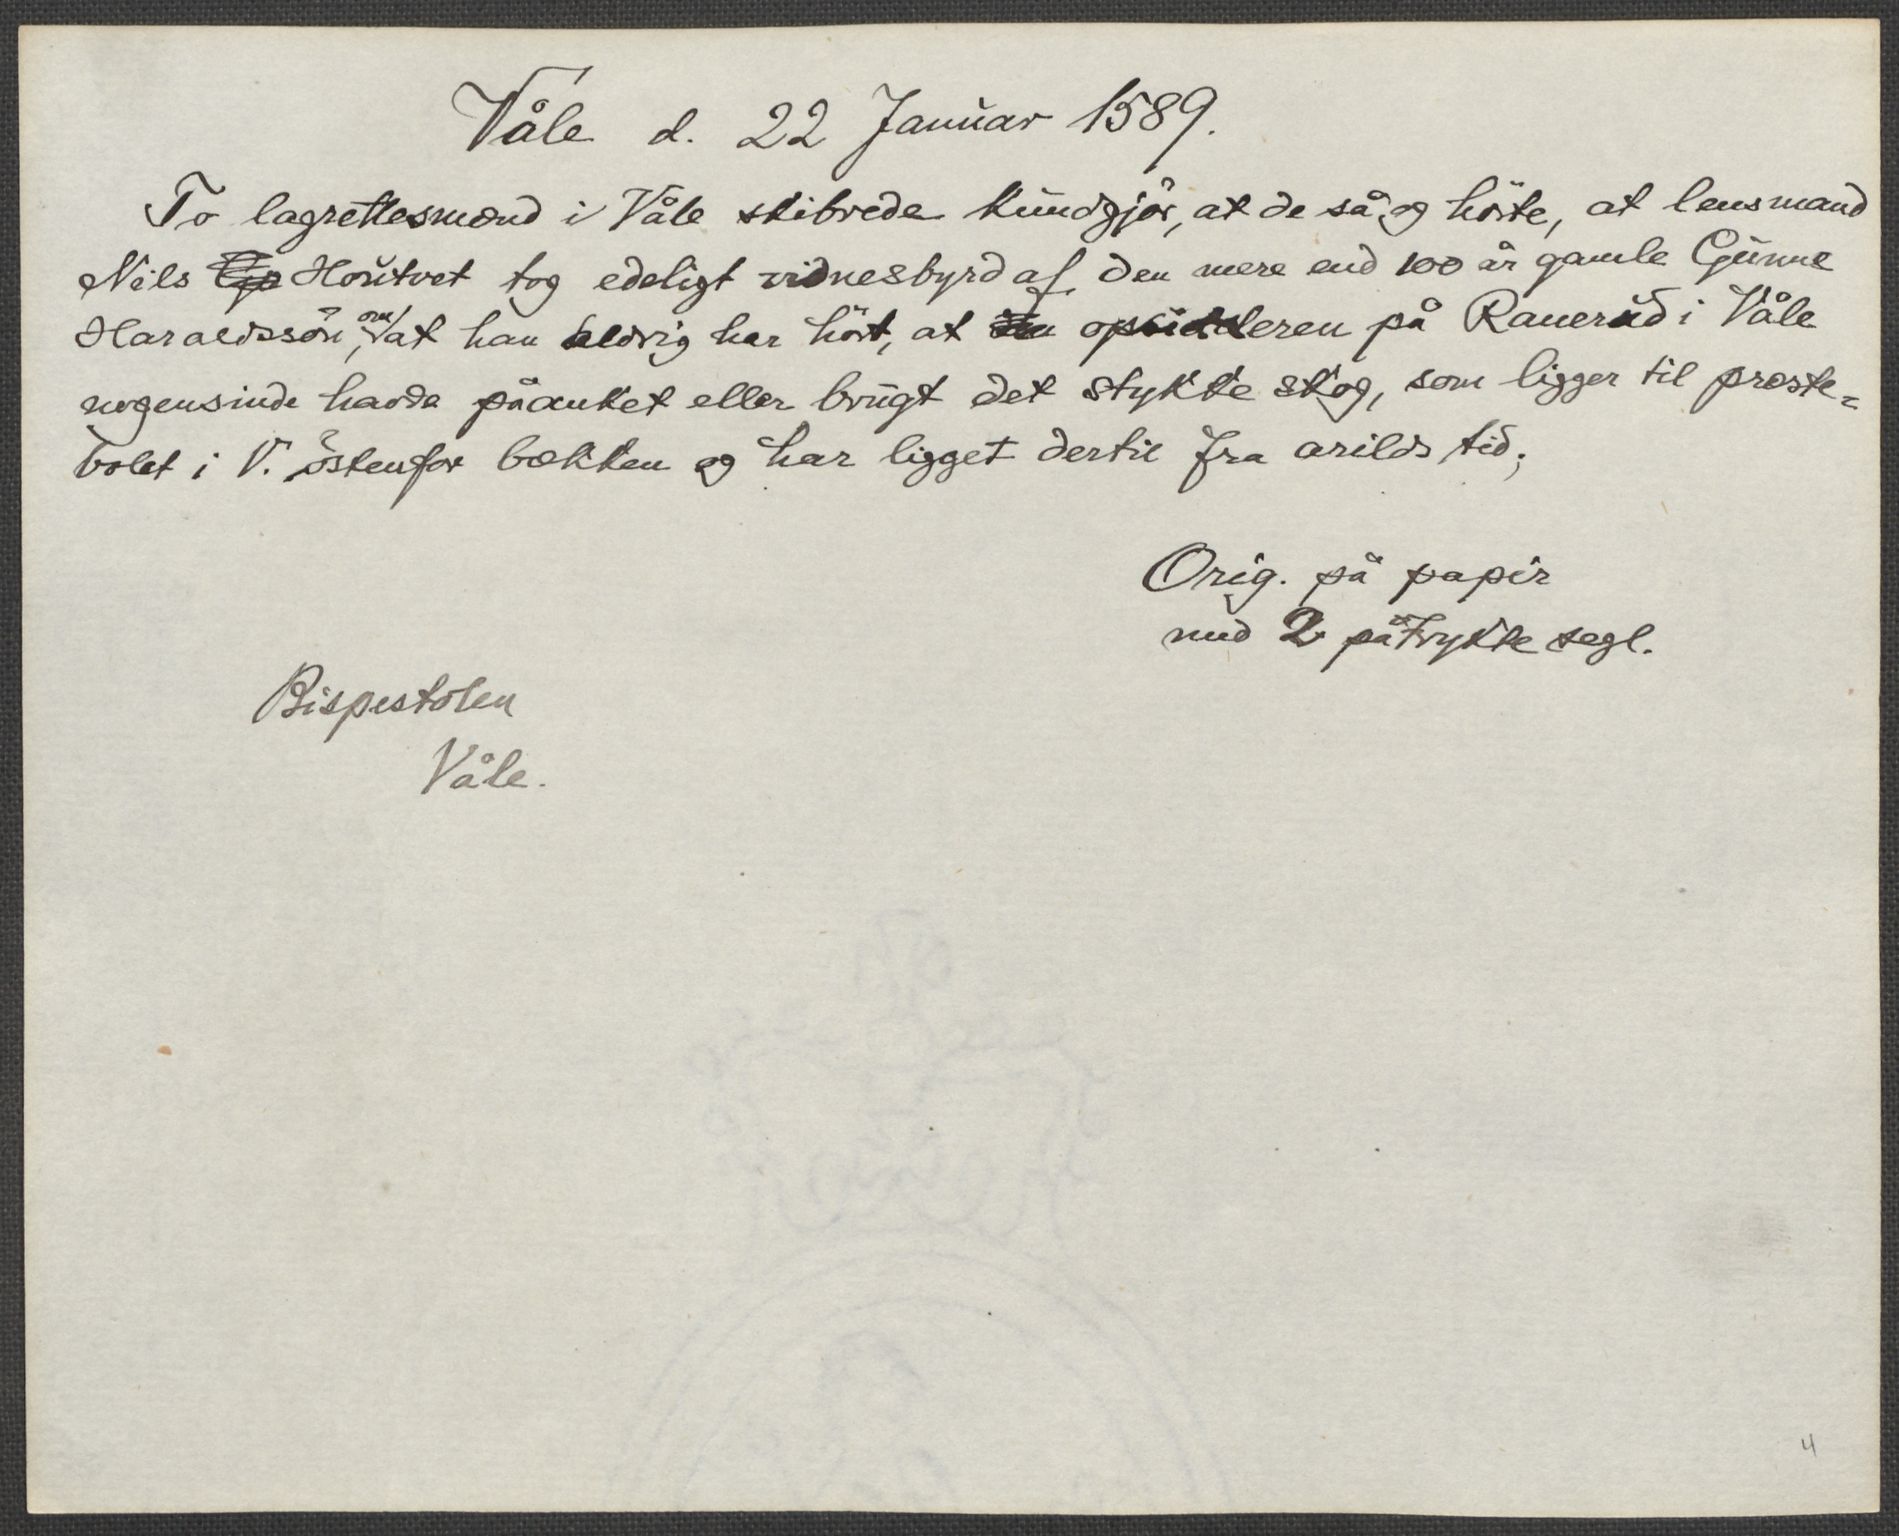 Våle d. 22 Januar 1589.
To lagrettesmænd i Våle skibrede kundgjör, at de så og hörte, at lensmand
Nils Houtvet tog edeligt vidnesbyrd af den mere end 100 år gamle Gunne
Haraldssön, om, at han aldrig har hört, at opsidderen på Ranerud i Våle
nogensinde havde påanket eller brugt det stykke skog, som ligger til præste-
bolet i V. östenfor bækken og har ligget dertil fra arilds tid.
Orig. på papir
med 2 påtrykte segl.
Bispestolen
Våle.
4